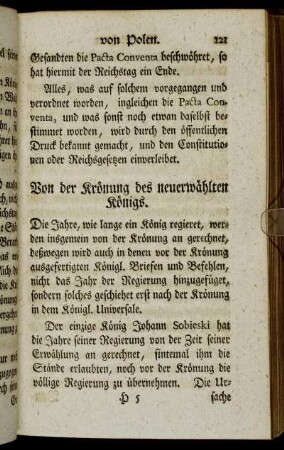 von Polen. 121
Gesandten die Pacta Conventa beschwöhret, so
hat hiermit der Reichstag ein Ende.
Alles, was auf solchem vorgegangen und
verordnet worden, ingleichen die Pacta Con-
venta, und was sonst noch etwan daselbst be-
stimmet worden, wird durch den öffentlichen
Druck bekannt gemacht, und den Constitutio-
nen oder Reichsgesetzen einverleibet.
Von der Krönung des neuerwählten
Königs.
Die Jahre, wie lange ein König regieret, wer-
den insgemein von der Krönung an gerechnet,
deßwegen wird auch in denen vor der Krönung
ausgefertigten Königl. Briefen und Befehlen,
nicht das Jahr der Regierung hinzugefüget,
sondern solches geschiehet erst nach der Krönung
in dem Königl. Universale.
Der einzige König Johann Sobieski hat
die Jahre seiner Regierung von der Zeit seiner
Erwählung an gerechnet, sintemal ihm die
Stände erlaubten, noch vor der Krönung die
völlige Regierung zu übernehmen. Die Ur-
H 5 sache